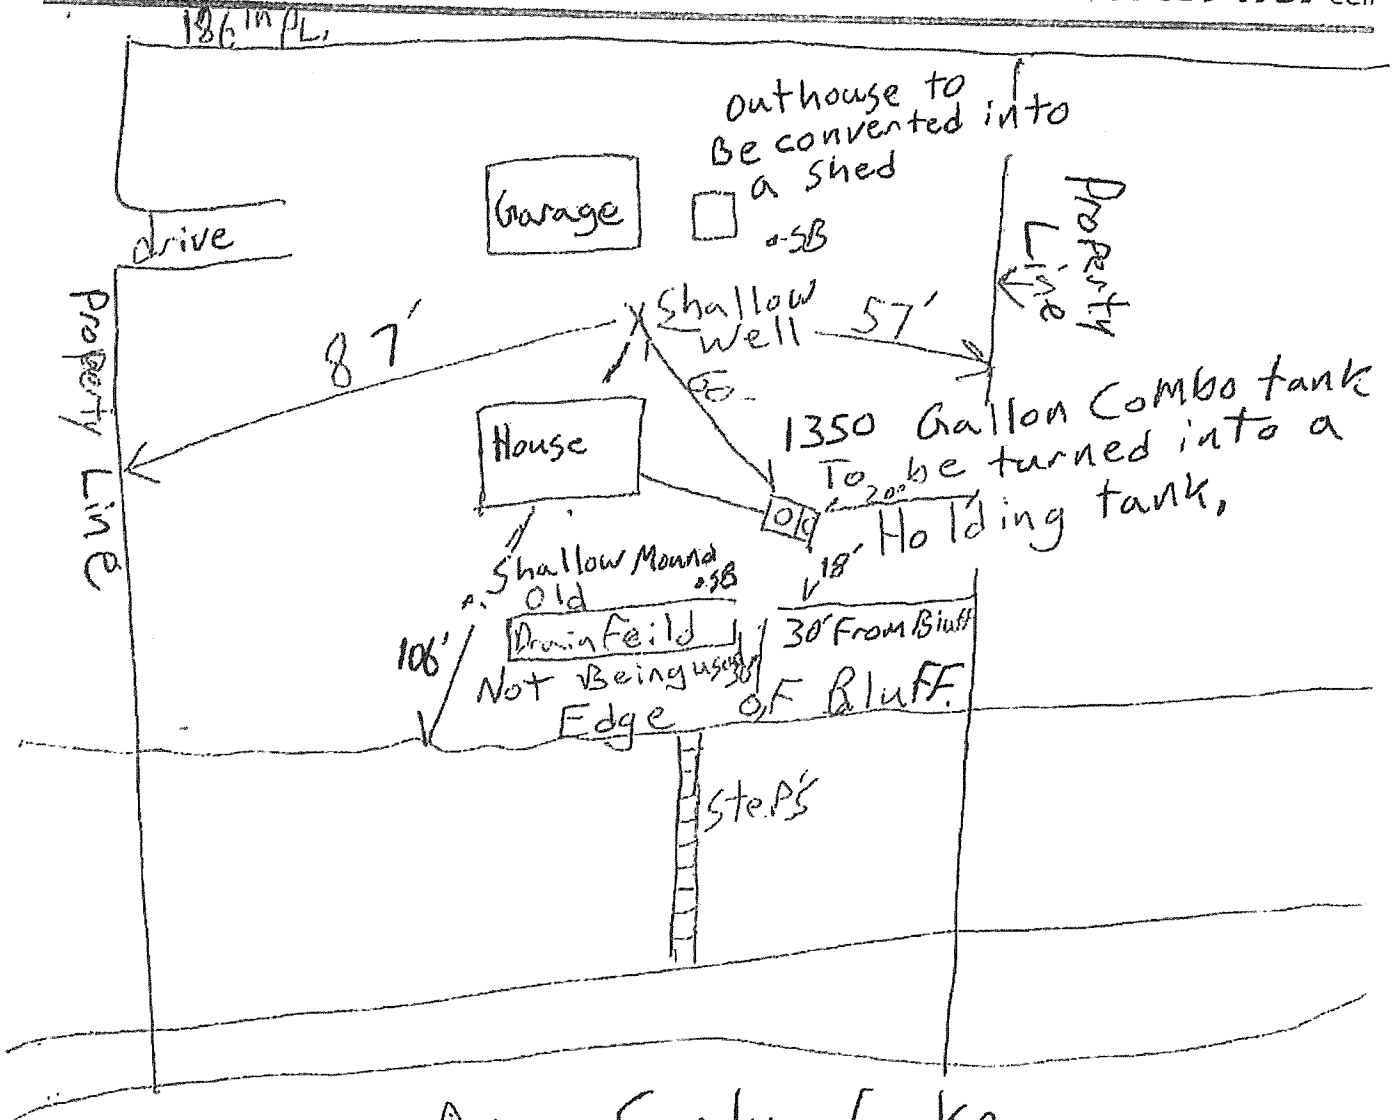 cell
186 in PL.
outhouse to
Be converted into
a shed
Garage
.SB
drive
Property Line
Property
Line
Shallow
Well
57'
87'
60
House
1350 Gallon Combo tank
To be turned into a
Holding tank.
20'
18'
Shallow Mound
Old
.SB
Drain Feild
Not Being used
30' From Bluff
106'
Edge OF Bluff.
Step's